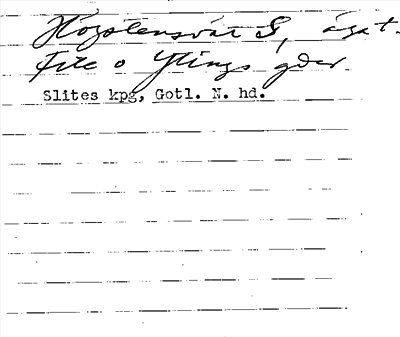 Hägstensvät S, ägat.
File o Ytings gder
Slites kpg, Gotl. N. hd.